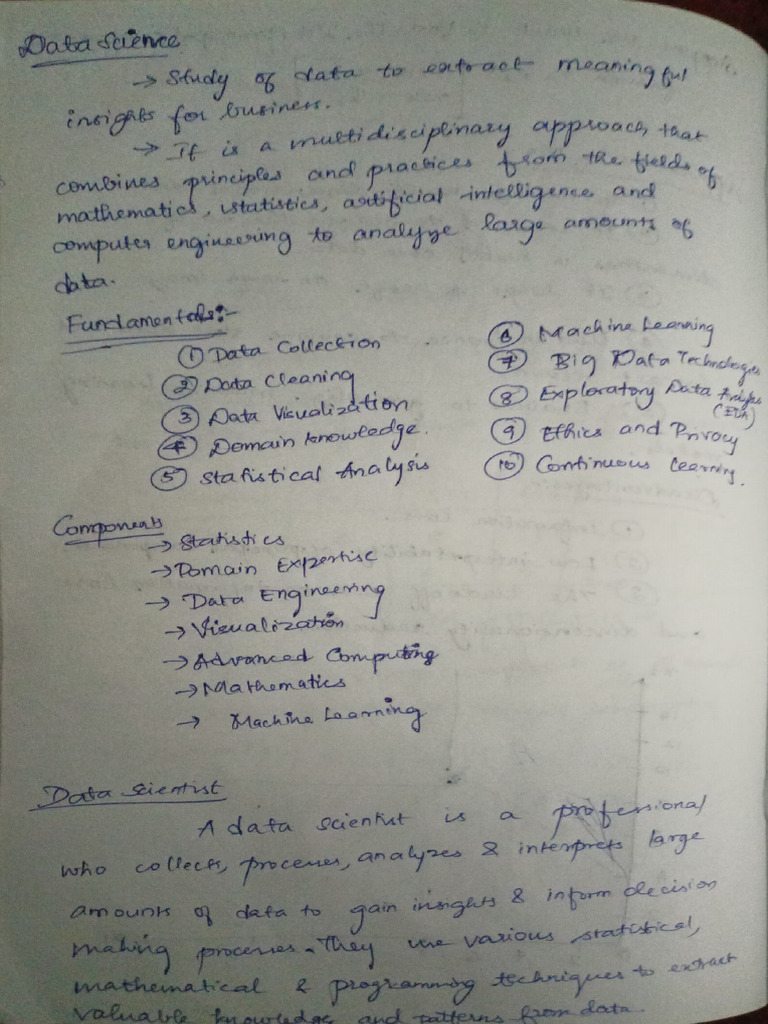 Data Science
→ Study of data to extract meaningful
insights for business.
→ It is a multidisciplinary approach, that
combines principles and practices from the fields of
mathematics, statistics, artificial intelligence and
computer engineering to analyze large amounts of
data.
Fundamentals:-
① Data Collection
② Data Cleaning
③ Data Visualization
④ Domain knowledge.
⑤ Statistical Analysis
⑥ Machine Learning
⑦ Big Data Technologies
⑧ Exploratory Data Analysis
(EDA)
⑨ Ethics and Privacy
⑩ Continuous Learning.
Components
→ Statistics
→ Domain Expertise
→ Data Engineering
→ Visualization
→ Advanced Computing
→ Mathematics
→ Machine Learning
Data Scientist
A data scientist is a professional
who collects, processes, analyzes & interprets large
amounts of data to gain insights & inform decision
making processes. They use various statistical,
mathematical & programming techniques to extract
valuable knowledge and patterns from data.